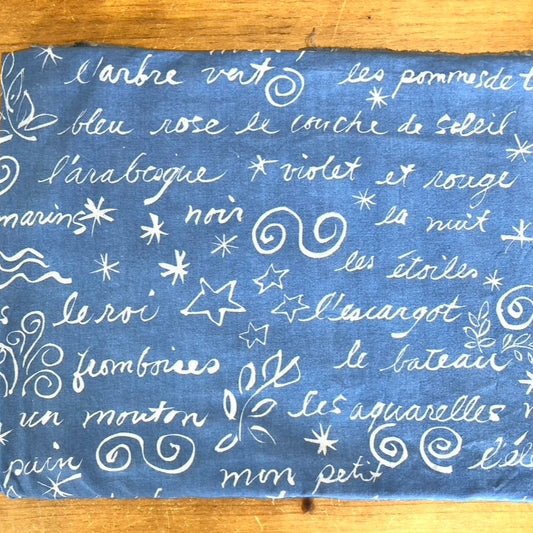 l'arbre vert les pommes de t
bleu rose le couche de soleil
l'arabesque violet et rouge
marins noir la nuit
les étoiles
le roi l'escargot
fromboises le bateau
un mouton les aquarelles
pain mon petit l'él